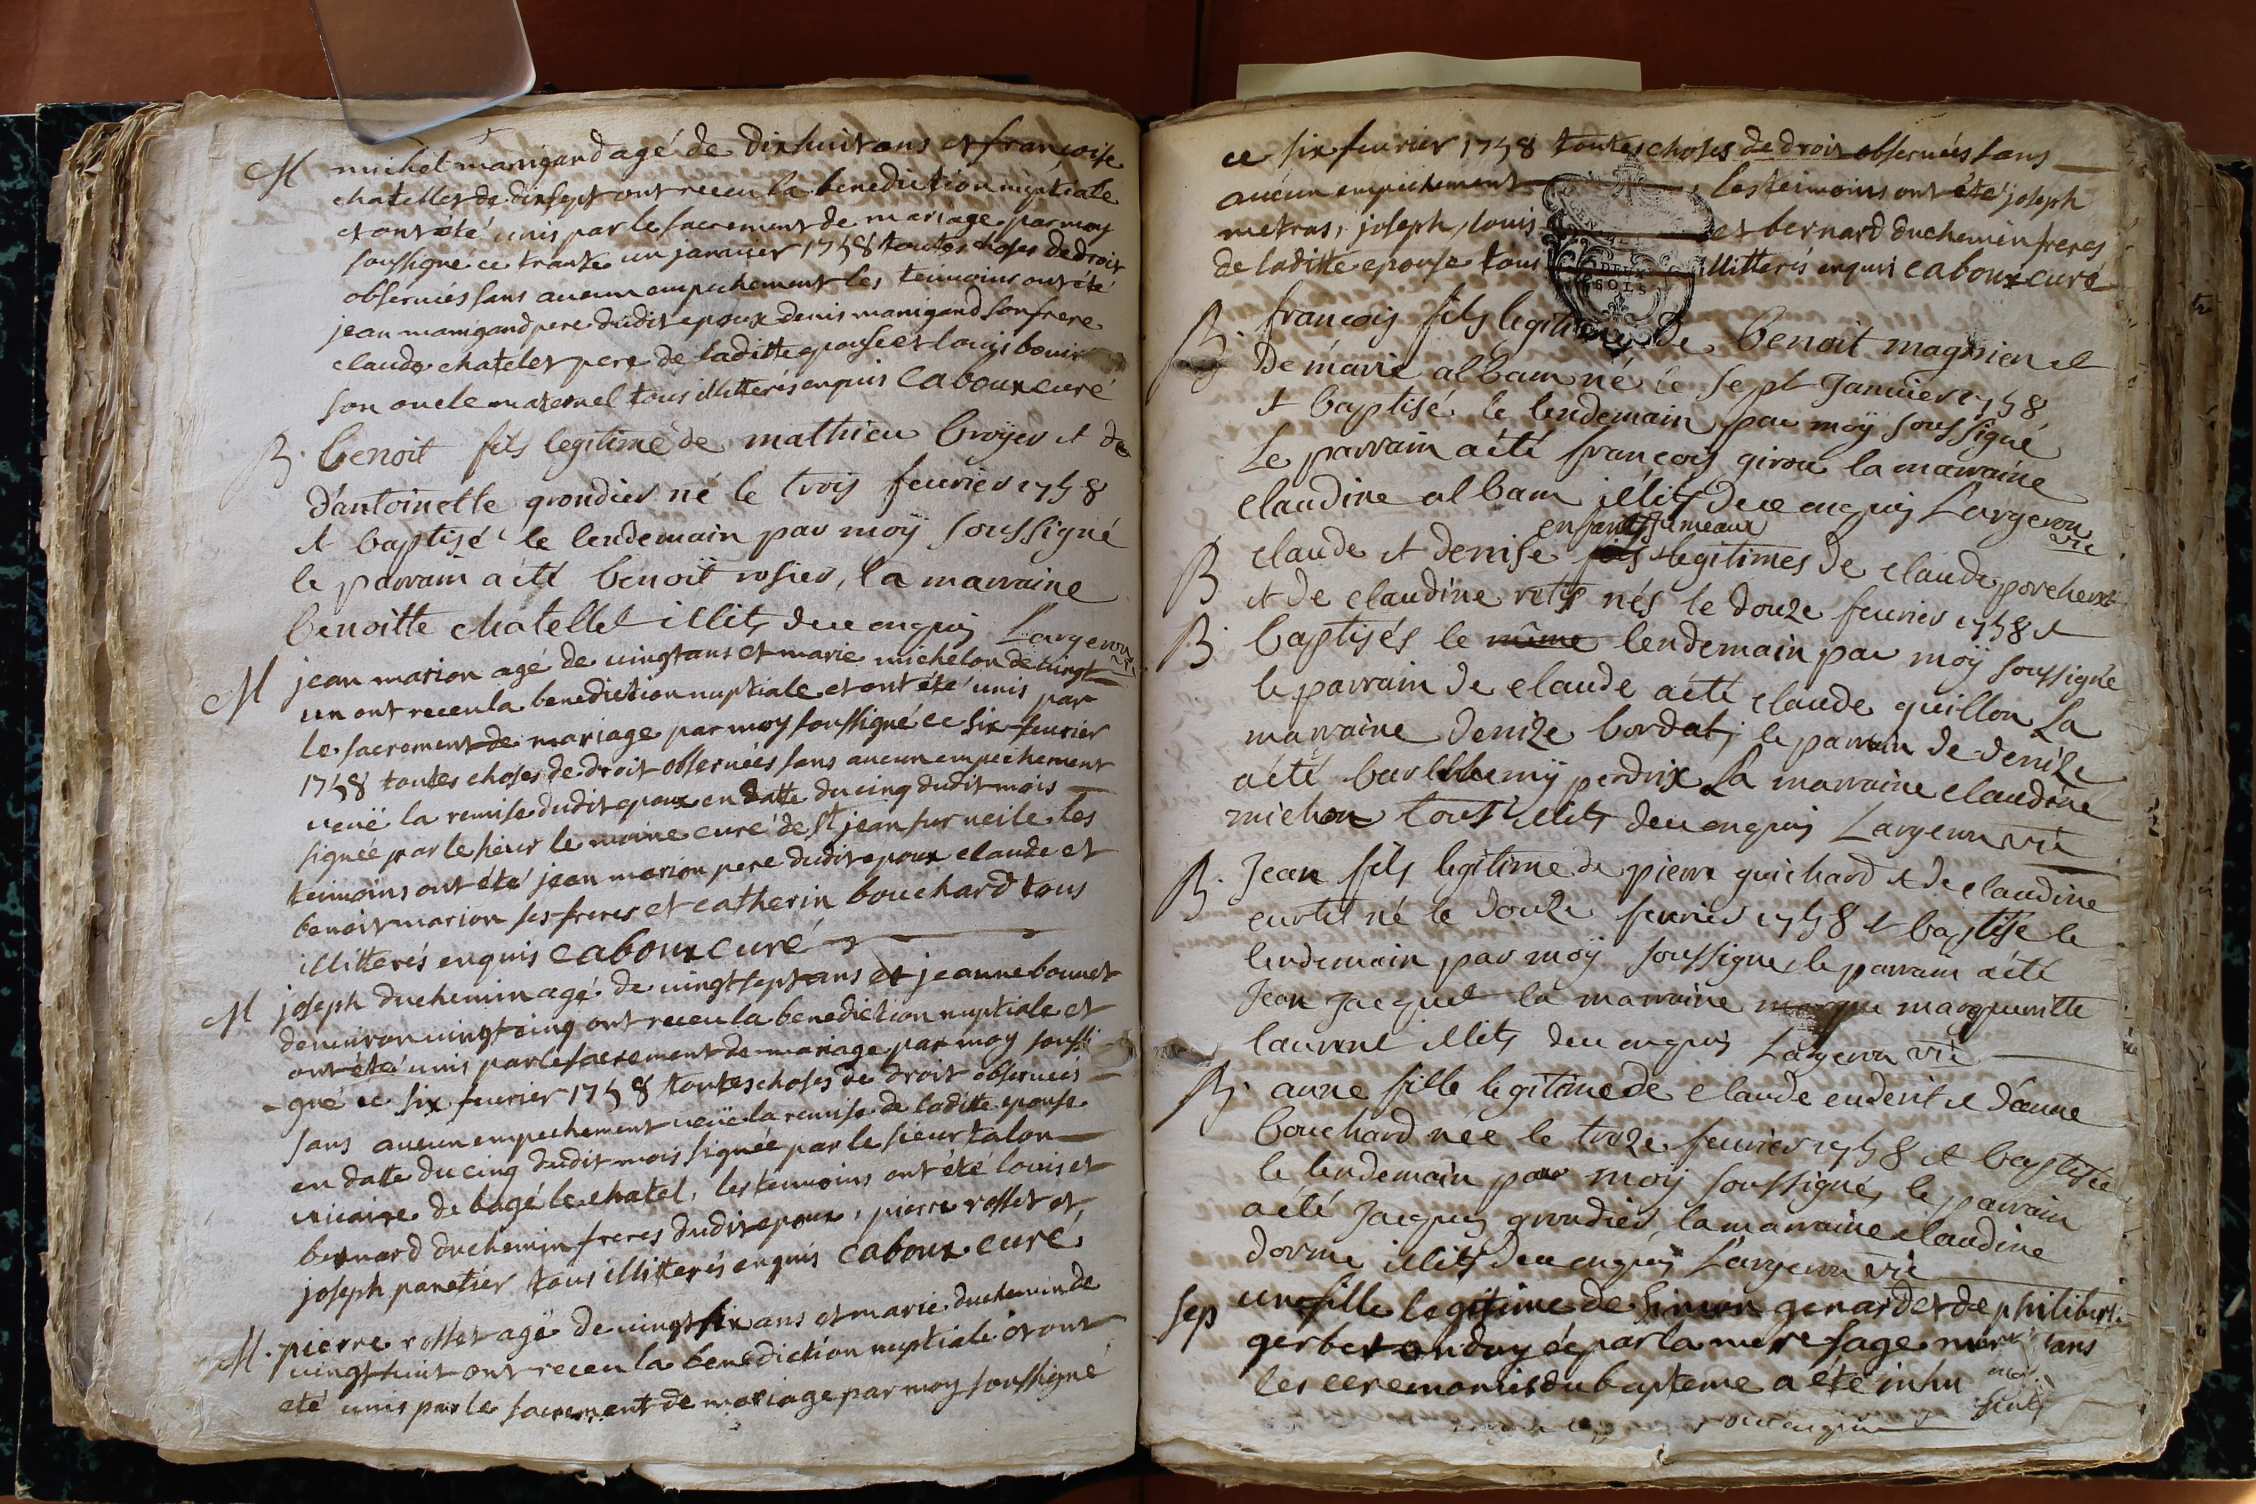 M michel manigand agé de dixhuit ans et françoise
chatellet de dixsept ont receu la benediction nuptiale
et ont été unis par le sacrement de mariage par moy
soussigné ce trante un januier 1758 toutes choses de droit
obseruées sans aucun empechement les temoins ont été
jean manigand pere dudit epoux denis manigand son frere
claude chatelet pere de laditte epouse et louis bouir
son oncle maternel tous illitterés enquis caboux curé
B. benoit fils legitime de mathieu broyer et de
d'antoinette grondier né le trois feurier 1758
et baptisé le lendemain par moÿ soussigné
le parrain a été benoit rosier, la marraine
benoitte chatellet illits deue enquis Largeron vic
M jean marion agé de uingt ans et marie michelon de uingt
un ont receu la benediction nuptiale et ont été unis par
le sacrement de mariage par moy soussigné ce six feurier
1758 toutes choses de droit obseruées sans aucun empechement
ueüe la remise dudit epoux en datte du cinq dudit mois
signée par le sieur le moine curé de st jean sur ueile les
temoins ont été jean marion pere dudit epoux claude et
benoit marion ses freres et catherin bouchard tous
illitterés enquis caboux curé
M joseph duchemin agé de uingt sept ans et jeanne bonnet
denuiron uingt cinq ont receu la benediction nuptiale et
ont été unis par le sacrement de mariage par moy soussi
-gné ce six feurier 1758 toutes choses de droit obseruées
sans aucun empechement ueüe la remise de laditte epouse
en datte du cinq dudit mois signée par le sieur talon
uicaire de bagé le chatel, les temoins ont été louis et
bernard duchemin freres dudit epoux, pierre rosset et
joseph panetier tous illitterés enquis caboux curé
M. pierre rosset agé de uingt six ans et marie duchemin de
uingt huit ont receu la benediction nuptiale et ont
été unis par le sacrement de mariage par moy soussigné
ce six feurier 1758 toutes choses de droit obseruées sans
aucun empechement les temoins ont été joseph
metras, joseph, louis et bernard duchemin freres
de laditte epouse tous illitterés enquis caboux curé
DEUX
SOLS
B. françois fils legitime de benoit magnien et
de marie albam né le sept januier 1758
et baptisé le lendemain par moÿ soussigné
le parrain a été françois giroux la marraine
claudine albam illits deue enquis Largeron vic
enfants jumeaux
B claude et denise fils legitimes de claude porcheret
et de claudine retif nés le douze feurier 1758 et
B baptisés le même lendemain par moÿ soussigné
le parrain de claude a été claude guillon la
marraine denize bordat, le parrain de denize
a été barthlemÿ perdrix la marraine claudine
michon tous illits deu enquis Largeron vic
B. Jean fils legitime de pierre guichard et de claudine
curtet né le douze feurier 1758 et baptisé le
lendemain par moÿ soussigné, le parrain a été
Jean Jacquet la marraine marque margueritte
laurent illits deu enquis Largeron vic
B. anne fille legitime de claude cuderit et d'anne
bouchard née le treze feurier 1758 et baptisée
le lendemain par moÿ soussigné, le parrain
a été Jacques grondier, la marraine claudine
dorme illits deu enquis Largeron vic
sep une fille legitime de Simon genard et de philiberte
gerbet ondoyée par la mere sage morte sans
les ceremonies du bapteme a été inhu